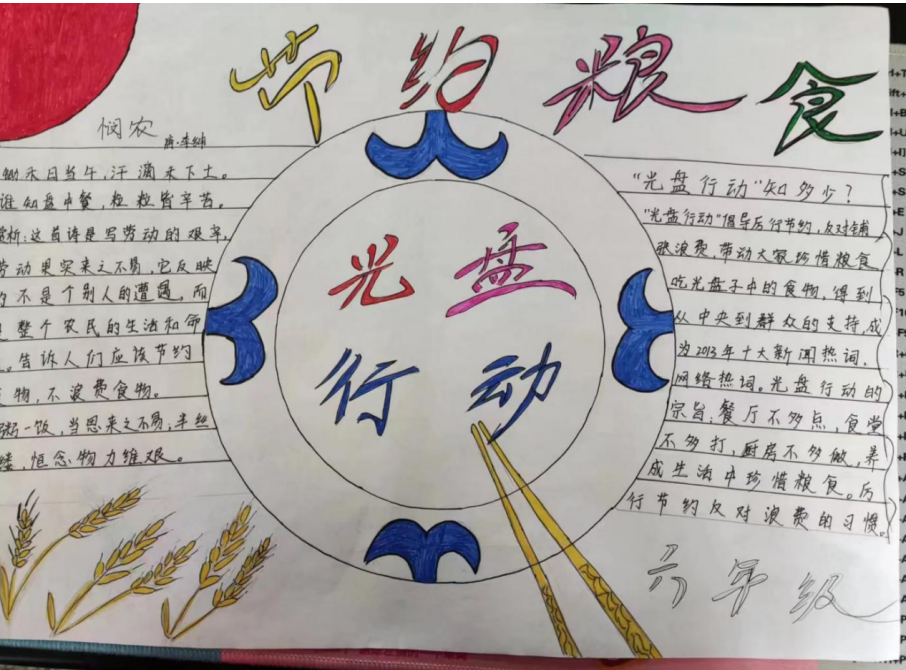 节约粮食
悯农
唐·李绅
锄禾日当午,汗滴禾下土。
谁知盘中餐,粒粒皆辛苦。
赏析:这首诗是写劳动的艰辛,
劳动果实来之不易,它反映
的不是个别人的遭遇。而
是整个农民的生活和命
。告诉人们应该节约
食物,不浪费食物。
粥一饭,当思来之不易,半丝
缕,恒念物力维艰。
光盘
行动
"光盘行动"知多少?
"光盘行动"倡导厉行节约,反对铺
张浪费,带动大家珍惜粮食
吃光盘子中的食物,得到
从中央到群众的支持,成
为2013年十大新闻热词、
网络热词。光盘行动的
宗旨:餐厅不多点,食堂
不多打,厨房不多做,养
成生活中珍惜粮食。厉
行节约反对浪费的习惯。
六年级